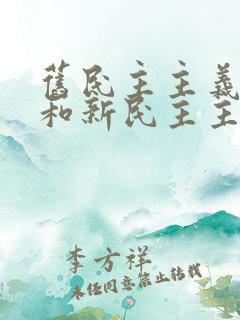 舊民主主義
和新民主主
李方祥
未经同意禁止转载